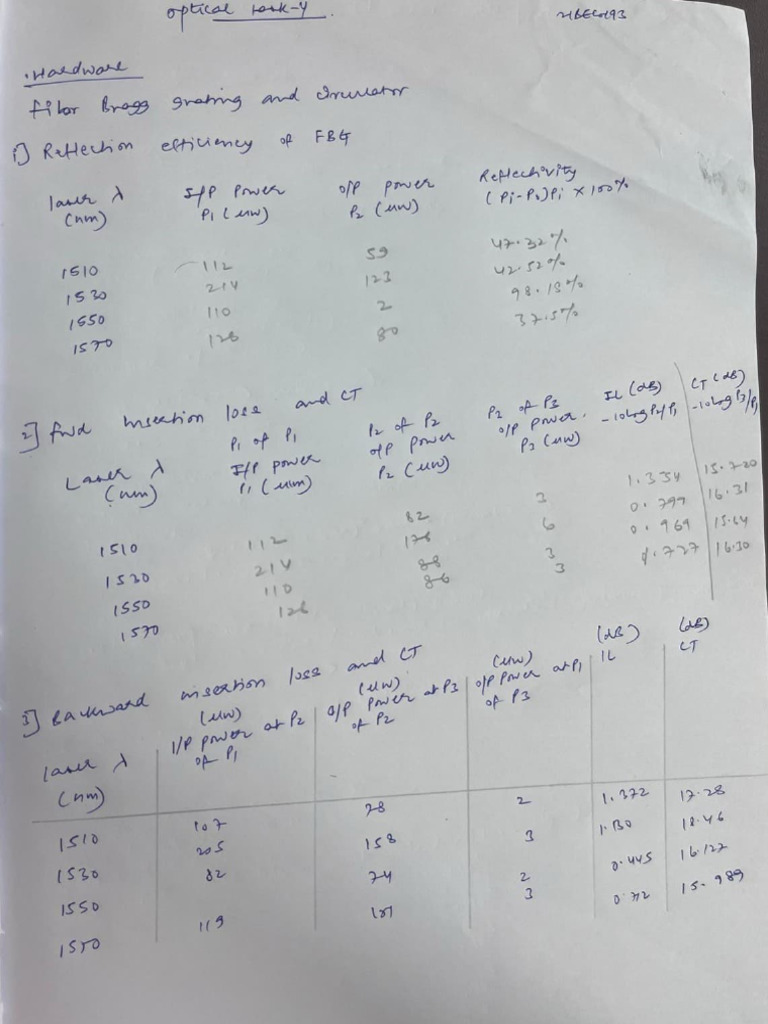 optical task-4
21BEC1193
Hardware
fibor Bragg grating and Circulator
1] Reflection efficiency of FBG
laser λ (nm) I/P Power P1 (uw) O/P power P2 (uw) Reflectivity (Pi-Po)Pi × 100%
1510 112 59 47.32%
1530 214 123 42.52%
1550 110 2 98.18%
1570 128 80 37.5%
2] fwd Insection loss and CT
Laser λ (nm) P1 of P1 I/P power P1 (um) P2 of P2 O/P power P2 (uw) P2 of P3 O/P power. P3 (uw) IL (dB) -10log P2/P1 CT (dB) -10log P3/P1
1510 112 82 3 1.354 15.720
1530 214 178 6 0.799 16.31
1550 110 88 3 0.969 15.64
1570 126 86 3 16.30
3] Backward insection loss and CT
laser λ (nm) (uw) I/P power at P2 of P1 (uw) O/P Power at P3 of P2 (uw) O/P Power at P1 of P3 (dB) IL (dB) CT
1510 107 78 2 1.372 17.28
1530 205 158 3 1.130 18.46
1550 82 74 2 0.445 16.127
1570 119 101 3 0.712 15.989